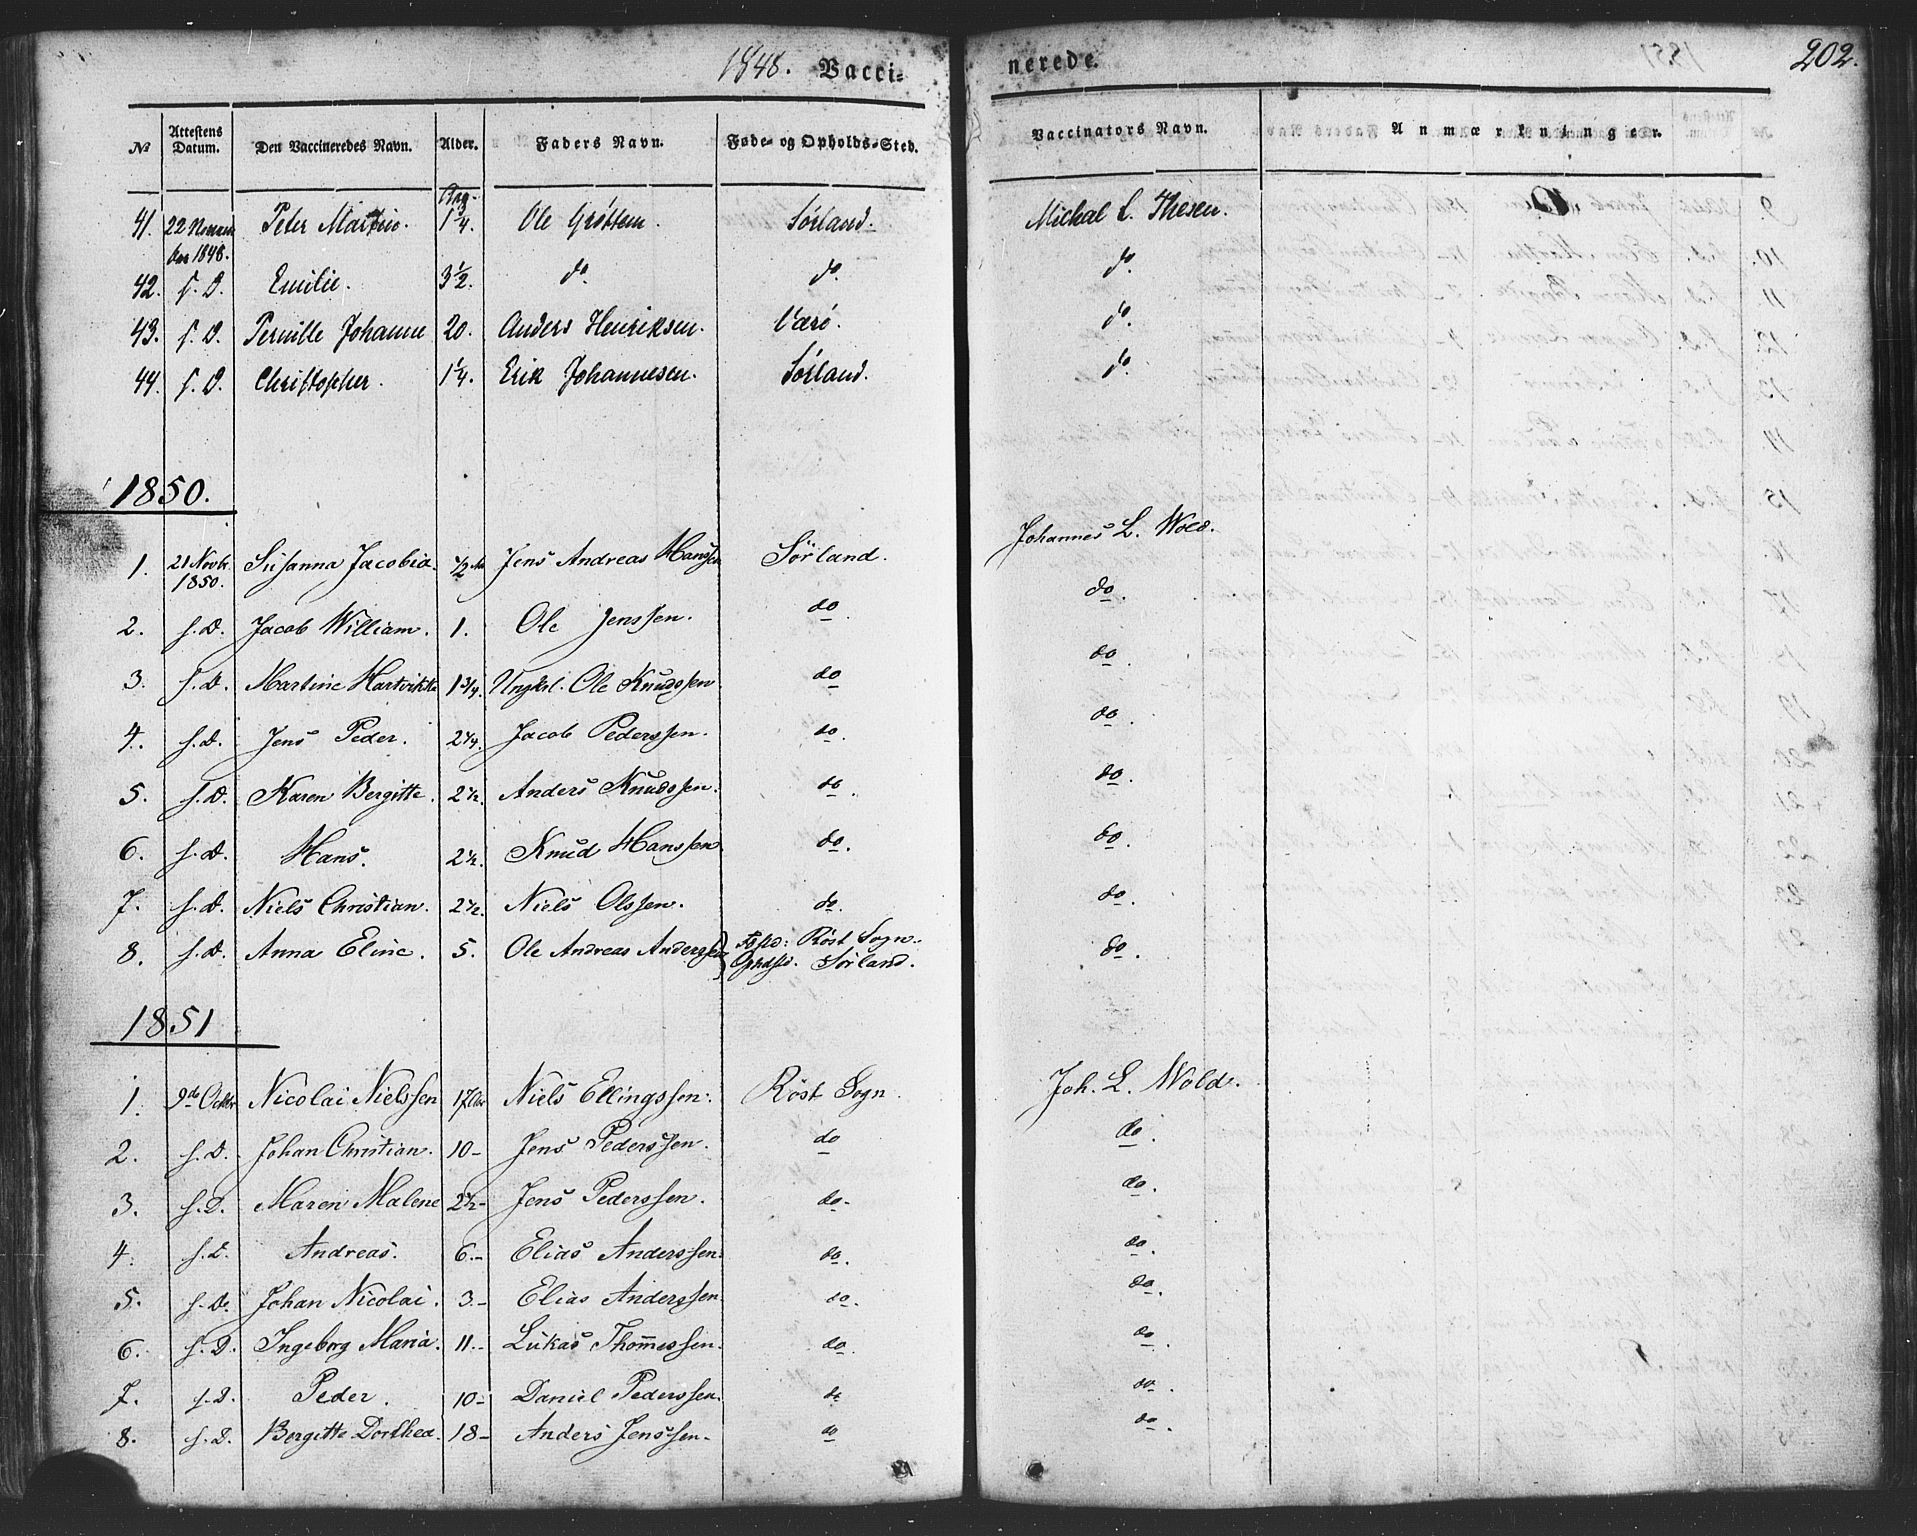 1848. Vacci=
nerede. 202.
№ Attestens Datum. Den Vaccineredes Navn. Alder. Faders Navn. Føde= og Opholds=Sted. Vaccinators Navn. Anmærkninger.
Aar
41. 22 Novem ber 1848. Peter Martin. 1¼. Ole Grøttem. Sørland. Michal L. Thesen.
42. s. D. Emilie. 3½. do. do. do.
43. s. D. Pernille Johanne 20. Anders Henriksen. Værø. do.
44. s. D. Christopher. 1¼. Erik Johannesen. Sørland. do.
1850.
1. 21 Novbr. 1850. Susanna Jacobia. ½ Jens Andreas Hanssen Sørland. Johannes L. Wold.
2. s. D. Jacob William. 1. Ole Jenssen. do. do.
3. s. D. Martine Hartvikke 1 3/4 Ungkrl. Ole Knudssen do do.
4. s. D. Jens Peder. 2 1/4. Jacob Pederssen. do. do.
5. s. D. Karen Bergitte. 2 1/2. Anders Knudssen. do. do.
6. s. D. Hans. 2 1/2. Knud Hanssen do. do.
7. s. D. Niels Christian. 2 1/2. Niels Olssen. do. do.
8. s. D. Anna Eline. 5. Ole Andreas Anderssen Føsd: Røst Sogn. do.
Ophdsd. Sørland.
1851
1. 9de Octbr Nicolai Nielssen 17 Niels Ellingssen. Röst Sogn. Joh. L. Wold.
2. s. D. Johan Christian. 10- Jens Pederssen. do do.
3. s. D. Maren Malene 2 1/2- Jens Pederssen. do- do.
4. s. D. Andreas. 6.- Elias Anderssen. do. do.
5. s. D. Johan Nicolai. 3.- Elias Anderssen do. do.
6. s. D. Ingeborg Maria. 11.- Lukas Thommessen. do. do.
7. s. D. Peder. 10- Daniel Pederssen. do do.
8. s. D. Bergitte Dorthea. 18- Anders Jenssen. do do.